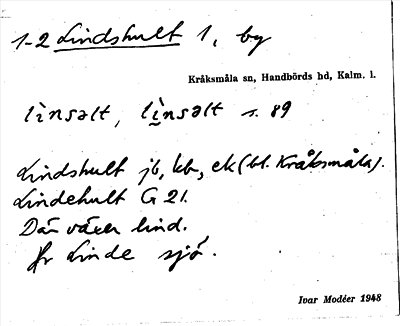 1-2 Lindshult 1, by
Kråksmåla sn, Handbörds hd, Kalm. l.
lìnsəlt, lì̲nsəlt s. 89
Lindshult jb, kb, ek (bl. Kråksmåla).
Lindehult G 21.
Där växer lind.
Jfr Linde sjö.
Ivar Modéer 1948